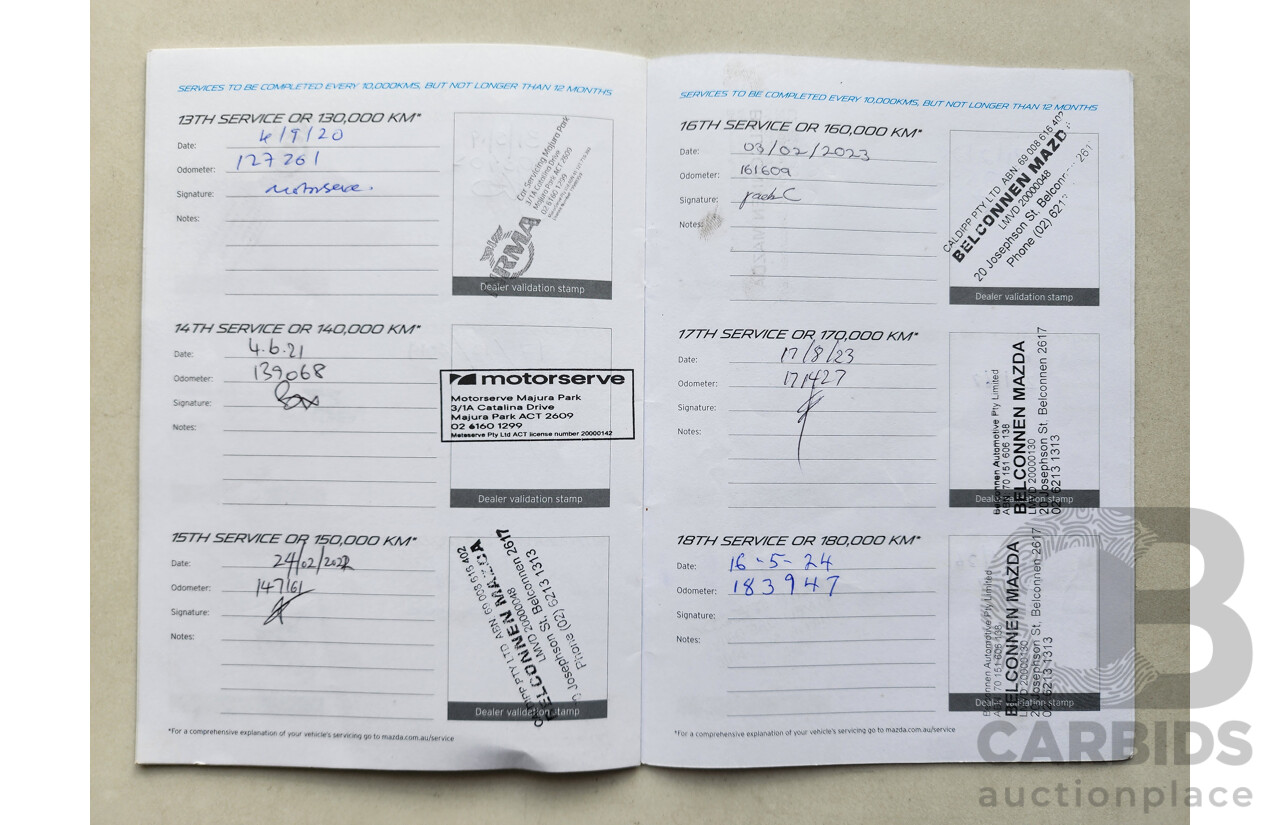 SERVICES TO BE COMPLETED EVERY 10,000KMS, BUT NOT LONGER THAN 12 MONTHS
13TH SERVICE OR 130,000 KM*
Date: 4/9/20
Odometer: 127261
Signature: Motorserve.
Notes:
Car Servicing Majura Park
3/1A Catalina Drive
Majura Park ACT 2609
02 6160 1299
Dealer validation stamp
14TH SERVICE OR 140,000 KM*
Date: 4.6.21
Odometer: 139068
Signature:
Notes:
motorserve
Motorserve Majura Park
3/1A Catalina Drive
Majura Park ACT 2609
02 6160 1299
Metaserve Pty Ltd ACT license number 20000142
Dealer validation stamp
15TH SERVICE OR 150,000 KM*
Date: 24/02/2022
Odometer: 147161
Signature:
Notes:
PTY LTD ABN 69 008 616 402
BELCONNEN
LMVD 20000048
Josephson St, Belconnen 2617
Phone (02) 6213 1313
Dealer validation stamp
*For a comprehensive explanation of your vehicle's servicing go to mazda.com.au/service
SERVICES TO BE COMPLETED EVERY 10,000KMS, BUT NOT LONGER THAN 12 MONTHS
16TH SERVICE OR 160,000 KM*
Date: 03/02/2023
Odometer: 161609
Signature:
Notes:
CALDIPP PTY LTD ABN: 69 008 616 402
BELCONNEN MAZD
LMVD 20000048
20 Josephson St. Belconn
Phone (02) 621
Dealer validation stamp
17TH SERVICE OR 170,000 KM*
Date: 17/8/23
Odometer: 171427
Signature:
Notes:
Belconnen Automotive Pty Limited
ABN 70 151 606 138
BELCONNEN MAZDA
LMVD 20000130
20 Josephson St. Belconnen 2617
02 6213 1313
Dealer validation stamp
18TH SERVICE OR 180,000 KM*
Date: 16-5-24
Odometer: 183947
Signature:
Notes:
Belconnen Automotive Pty Limited
ABN 70 151 606 138
BELCONNEN MAZDA
LMVD 20000130
20 Josephson St, Belconnen 2617
02 6213 1313
Dealer validation stamp
*For a comprehensive explanation of your vehicle's servicing go to mazda.com.au/service
CARBIDS
auctionplace